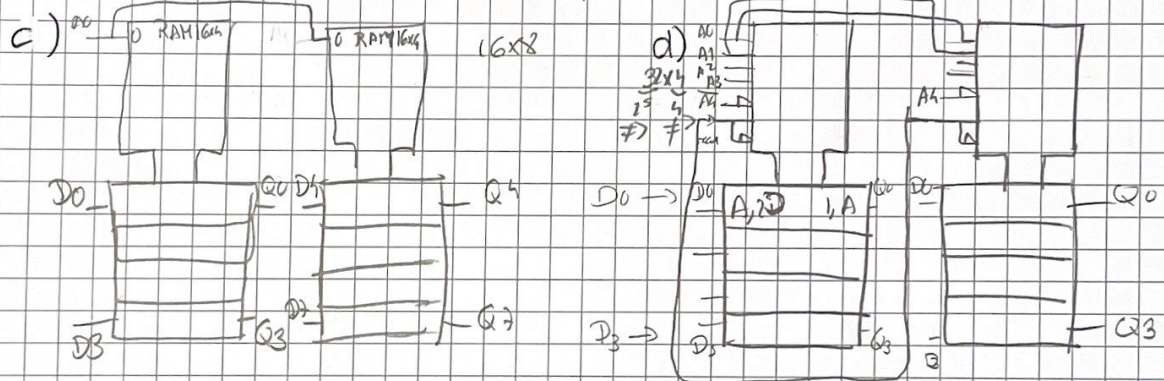 c)
A0
0 RAM 16x4
0 RAM 16x4
16x8
D0
Q0
D4
Q4
D3
Q3
D7
Q7
d)
A0
A1
A2
32x4
A3
A4
2⁵ 4
A4
D0 →
D0
A,2D
1,A
Q0
D0
Q0
D3 →
D3
Q3
Q3